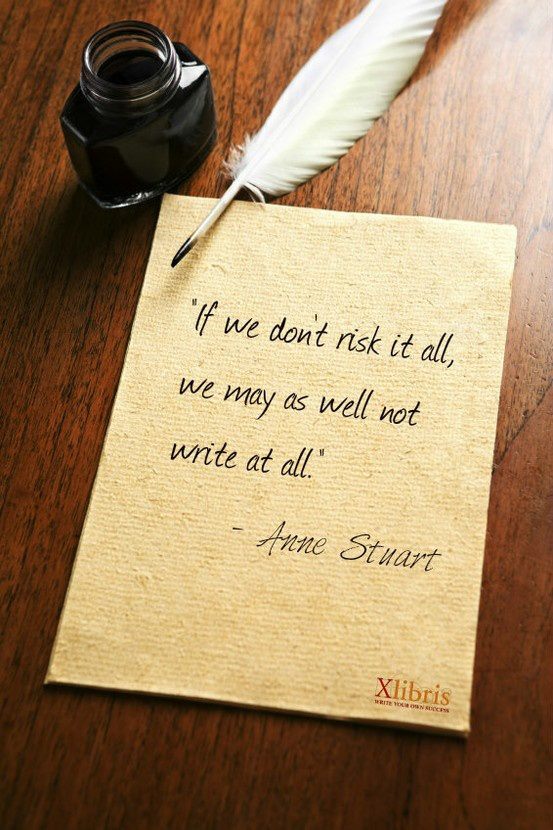 "If we don't risk it all,
we may as well not
write at all."
- Anne Stuart
Xlibris
WRITE YOUR OWN SUCCESS